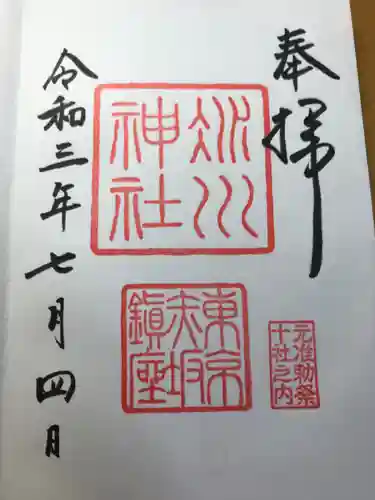 奉拝
氷川
神社
東京
赤坂
鎮座
元准勅祭
十社之内
令和三年七月四日